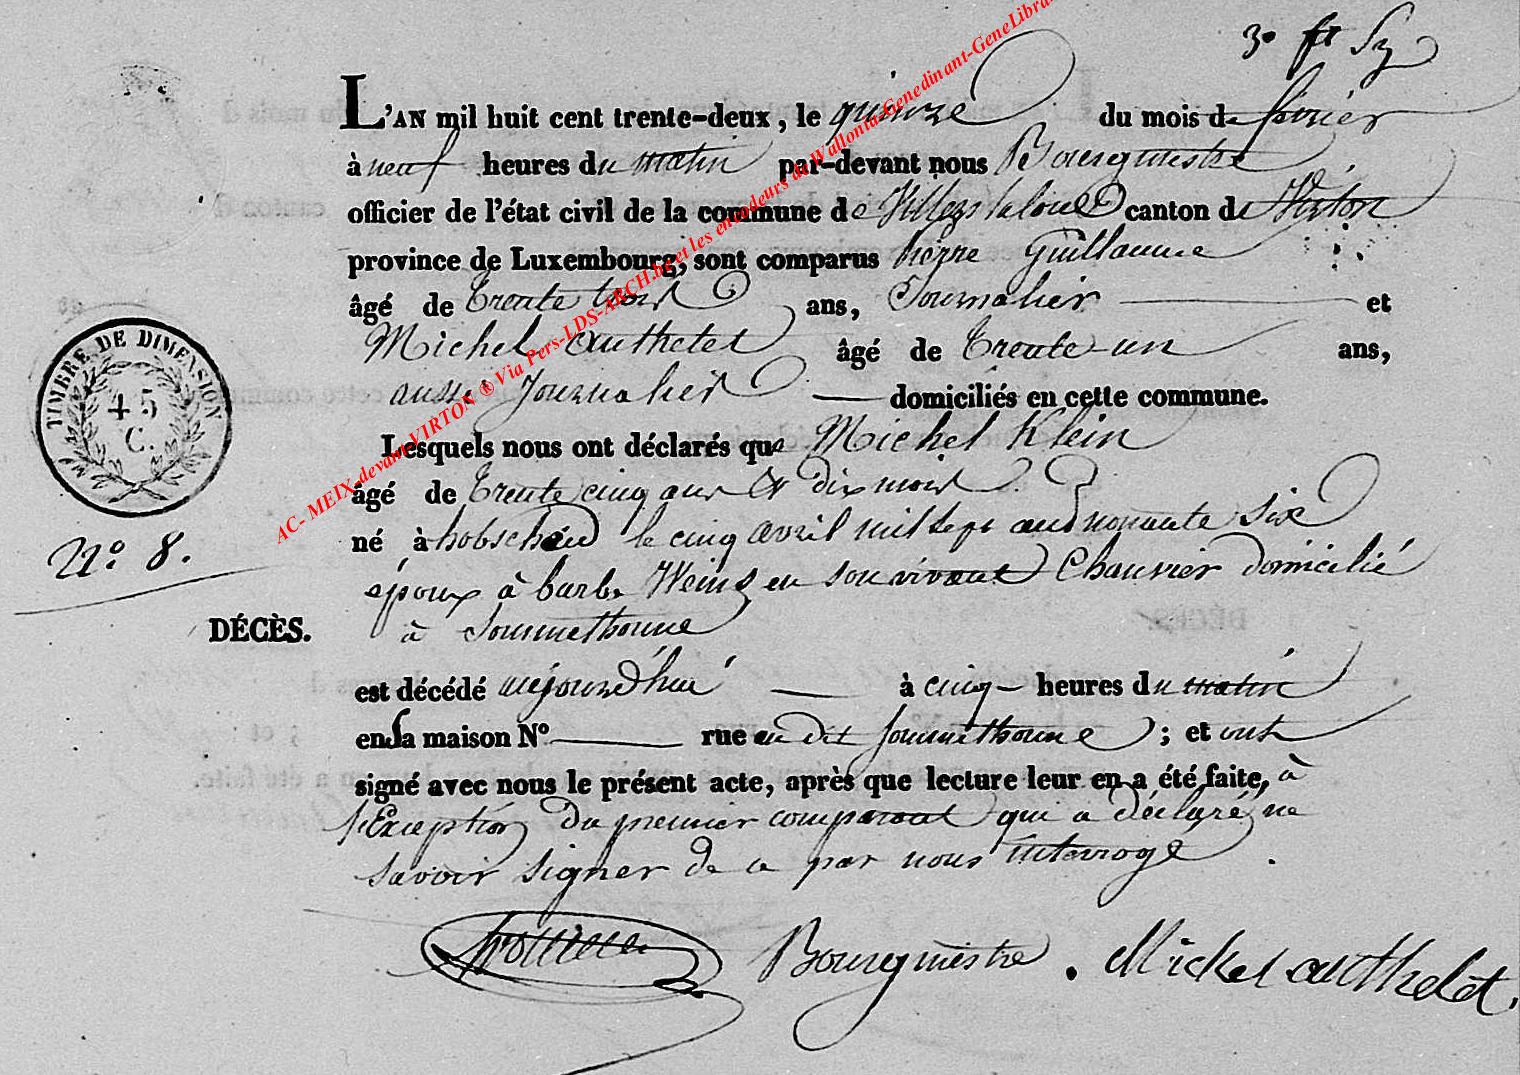 3e ft
L'AN mil huit cent trente-deux, le quinze du mois de fevrier
à neuf heures du matin par-devant nous Bourgmestre
officier de l'état civil de la commune de Villers la loue canton de Virton
province de Luxembourg, sont comparus pierre Guillaume
âgé de Trente trois ans, Journalier et
Michel Authelet âgé de Trente-un ans,
aussi Journalier domiciliés en cette commune.
Lesquels nous ont déclarés que Michel Klein
âgé de Trente cinq ans & dix mois
né à hobscheid le cinq avril mil sept cent nonante six
époux à barbe Weinz en son vivant Chauvier domicilié
à Sommethonne
DÉCÈS.
est décédé aujourd'hui à cinq heures du matin
en sa maison N° rue au dit Sommethonne ; et ont
signé avec nous le présent acte, après que lecture leur en a été faite, à
l'Exception du premier comparant qui a déclaré ne
savoir signer de ce par nous interrogé
Bourgmestre. Michel authelet.
TIMBRE DE DIMENSION
45
C.
N° 8.
AC- MEIX-devant-VIRTON ® Via Pers-LDS-ARCH.be et les encodeurs de Wallonia-Genedinant-GeneLibra